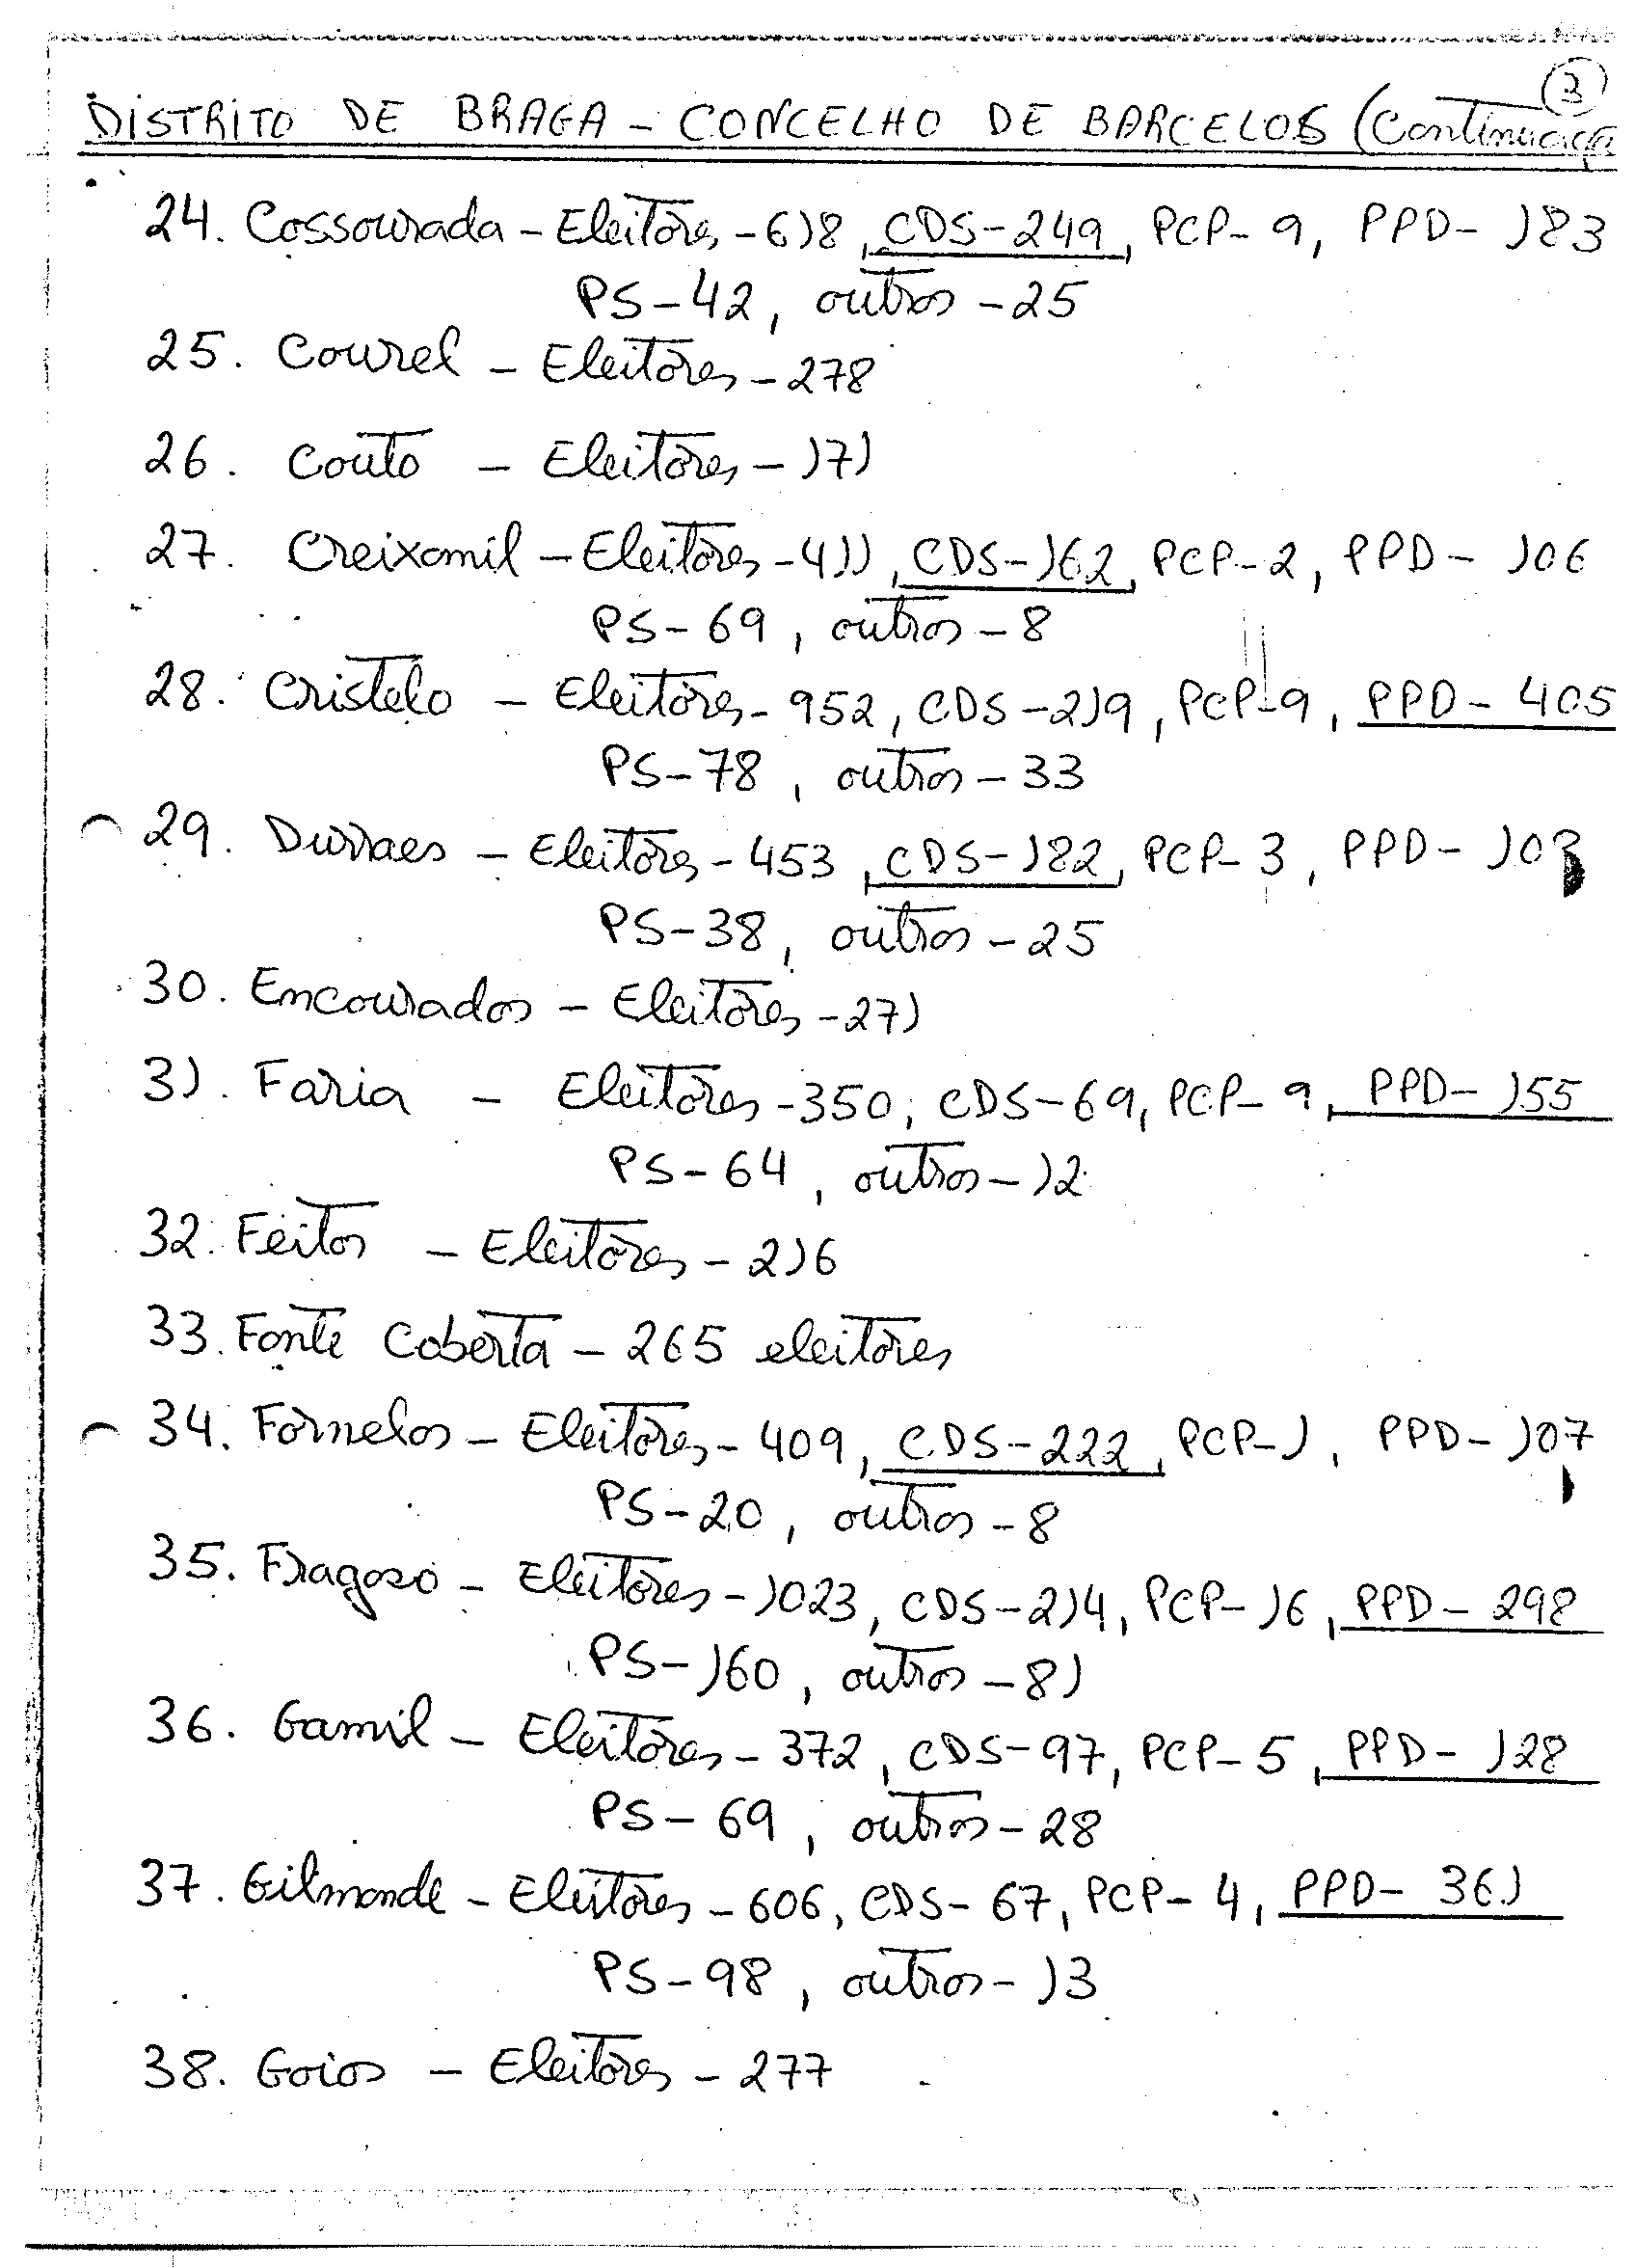 3
DISTRITO DE BRAGA - CONCELHO DE BARCELOS (Continuaçã
24. Cossourada - Eleitores - 618, CDS - 249, PCP - 9, PPD - 183
PS - 42, outros - 25
25. Courel - Eleitores - 278
26. Couto - Eleitores - 171
27. Creixomil - Eleitores - 411, CDS - 162, PCP - 2, PPD - 106
PS - 69, outros - 8
28. Cristelo - Eleitores - 952, CDS - 219, PCP - 9, PPD - 405
PS - 78, outros - 33
29. Durraes - Eleitores - 453, CDS - 182, PCP - 3, PPD - 103
PS - 38, outros - 25
30. Encourados - Eleitores - 271
31. Faria - Eleitores - 350, CDS - 69, PCP - 9, PPD - 155
PS - 64, outros - 12
32. Feitos - Eleitores - 216
33. Fonte Coberta - 265 eleitores
34. Fornelos - Eleitores - 409, CDS - 222, PCP - 1, PPD - 107
PS - 20, outros - 8
35. Fragoso - Eleitores - 1023, CDS - 214, PCP - 16, PPD - 298
PS - 160, outros - 81
36. Gamil - Eleitores - 372, CDS - 97, PCP - 5, PPD - 128
PS - 69, outros - 28
37. Gilmonde - Eleitores - 606, CDS - 67, PCP - 4, PPD - 361
PS - 98, outros - 13
38. Goios - Eleitores - 277